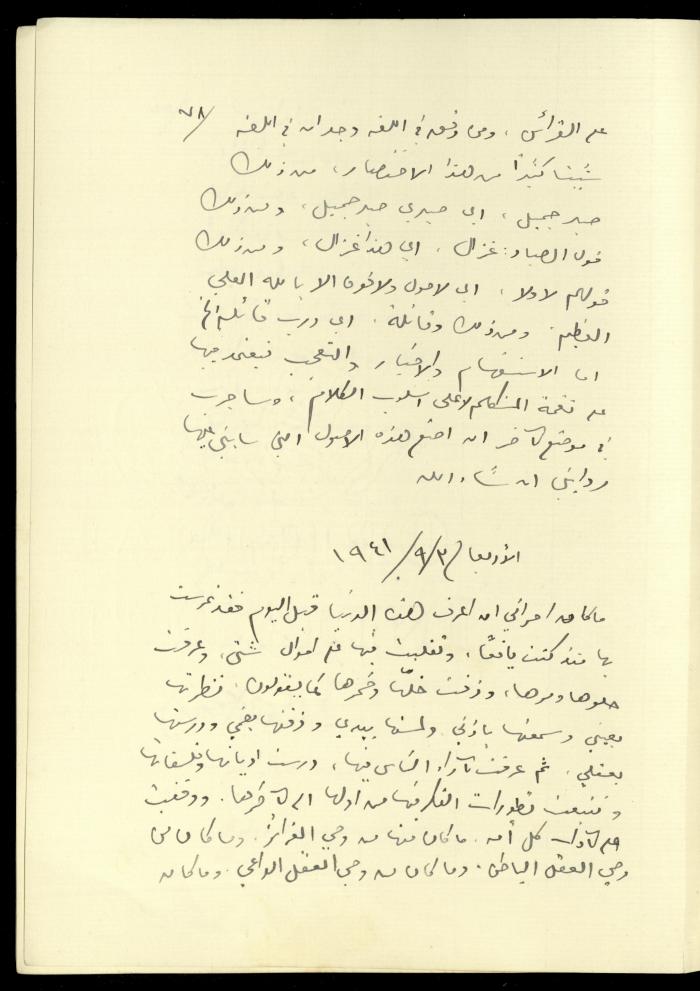 على القرائن، ومن دقق في اللغة وجد ان في اللغة ٧٨/
شيئا كثيرا من هذا الاختصار، من ذلك
صبر جميل، اي صبري صبر جميل، ومن ذلك
قول الصياد: غزال، اي هذا غزال، ومن ذلك
قولهم لا ولا، اي لا حول ولا قوة الا بالله العلي
العظيم. ومن ذلك وقائلة. اي ورب قائلة الخ
اما الاستفهام والاخبار والتعجب فيعتمد فيها
على نغمة المتكلم لا على اسلوب الكلام، وساجرب
في موضع آخر ان اضع هذه الاصول التي سابني عليها
روايتي ان شاء الله
الأربعاء ٣/٩/١٩٤١
ما كان احراني ان اعرف هذه الدنيا قبل اليوم فقد غرست
بها منذ كنت يافعا، وتقلبت فيها على احوال شتى، وعرفت
حلوها ومرها، وذقت خلها وخمرها كما يقولون. فنظرتها
بعيني وسمعتها بأذني ولمستها بيدي وذقتها بفمي ودرستها
بعقلي. ثم عرفت آراء الناس فيها، ودرست اديانها وفلسفاتها
وتتبعت تطورات الفكر فيها من اولها الى آخرها. ووقفت
على آداب كل أمة. ما كان منها من وحي الغرائز. وما كان من
وحي العقل الباطن. وما كان من وحي العقل الواعي. وما كان